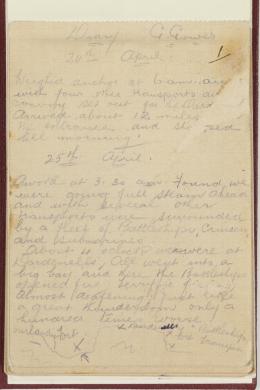 Diary G. Gower
1
24th April:
Weighed anchor at 6 am. and
with four other transports as
convoy set out for
Arrived about 12 miles
entrance and stopped
till morning.
25th April.
Awoke at 3.30 am found we
were going full steam ahead
and with several other
transports were surrounded
by a fleet of Battleships, Cruisers
and Submarines.
About 10 o'clock we were at
Dardanelles, All went into a
big bay and here the Battleships
opened fire, terrific firing
Almost deafening, Just like
a great thunderstorm only a
hundred times worse.
fort
x Battleships
x transports